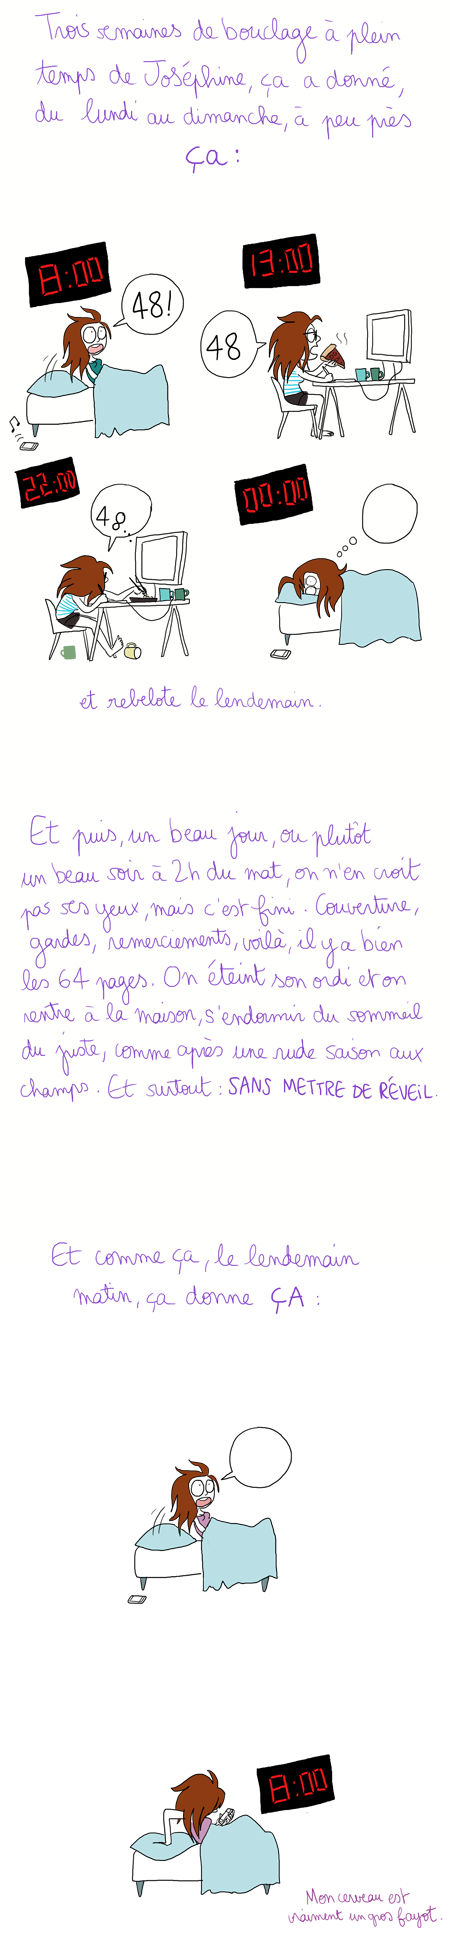 Trois semaines de bouclage à plein
temps de Joséphine, ça a donné,
du lundi au dimanche, à peu près
ça :
8:00
48!
13:00
48
22:00
48...
00:00
et rebelote le lendemain.
Et puis, un beau jour, ou plutôt
un beau soir à 2h du mat, on n'en croit
pas ses yeux, mais c'est fini. Couverture,
gardes, remerciements, voilà, il y a bien
les 64 pages. On éteint son ordi et on
rentre à la maison, s'endormir du sommeil
du juste, comme après une rude saison aux
champs. Et surtout : SANS METTRE DE RÉVEIL.
Et comme ça, le lendemain
matin, ça donne ÇA :
8:00
Mon cerveau est
vraiment un gros fayot.